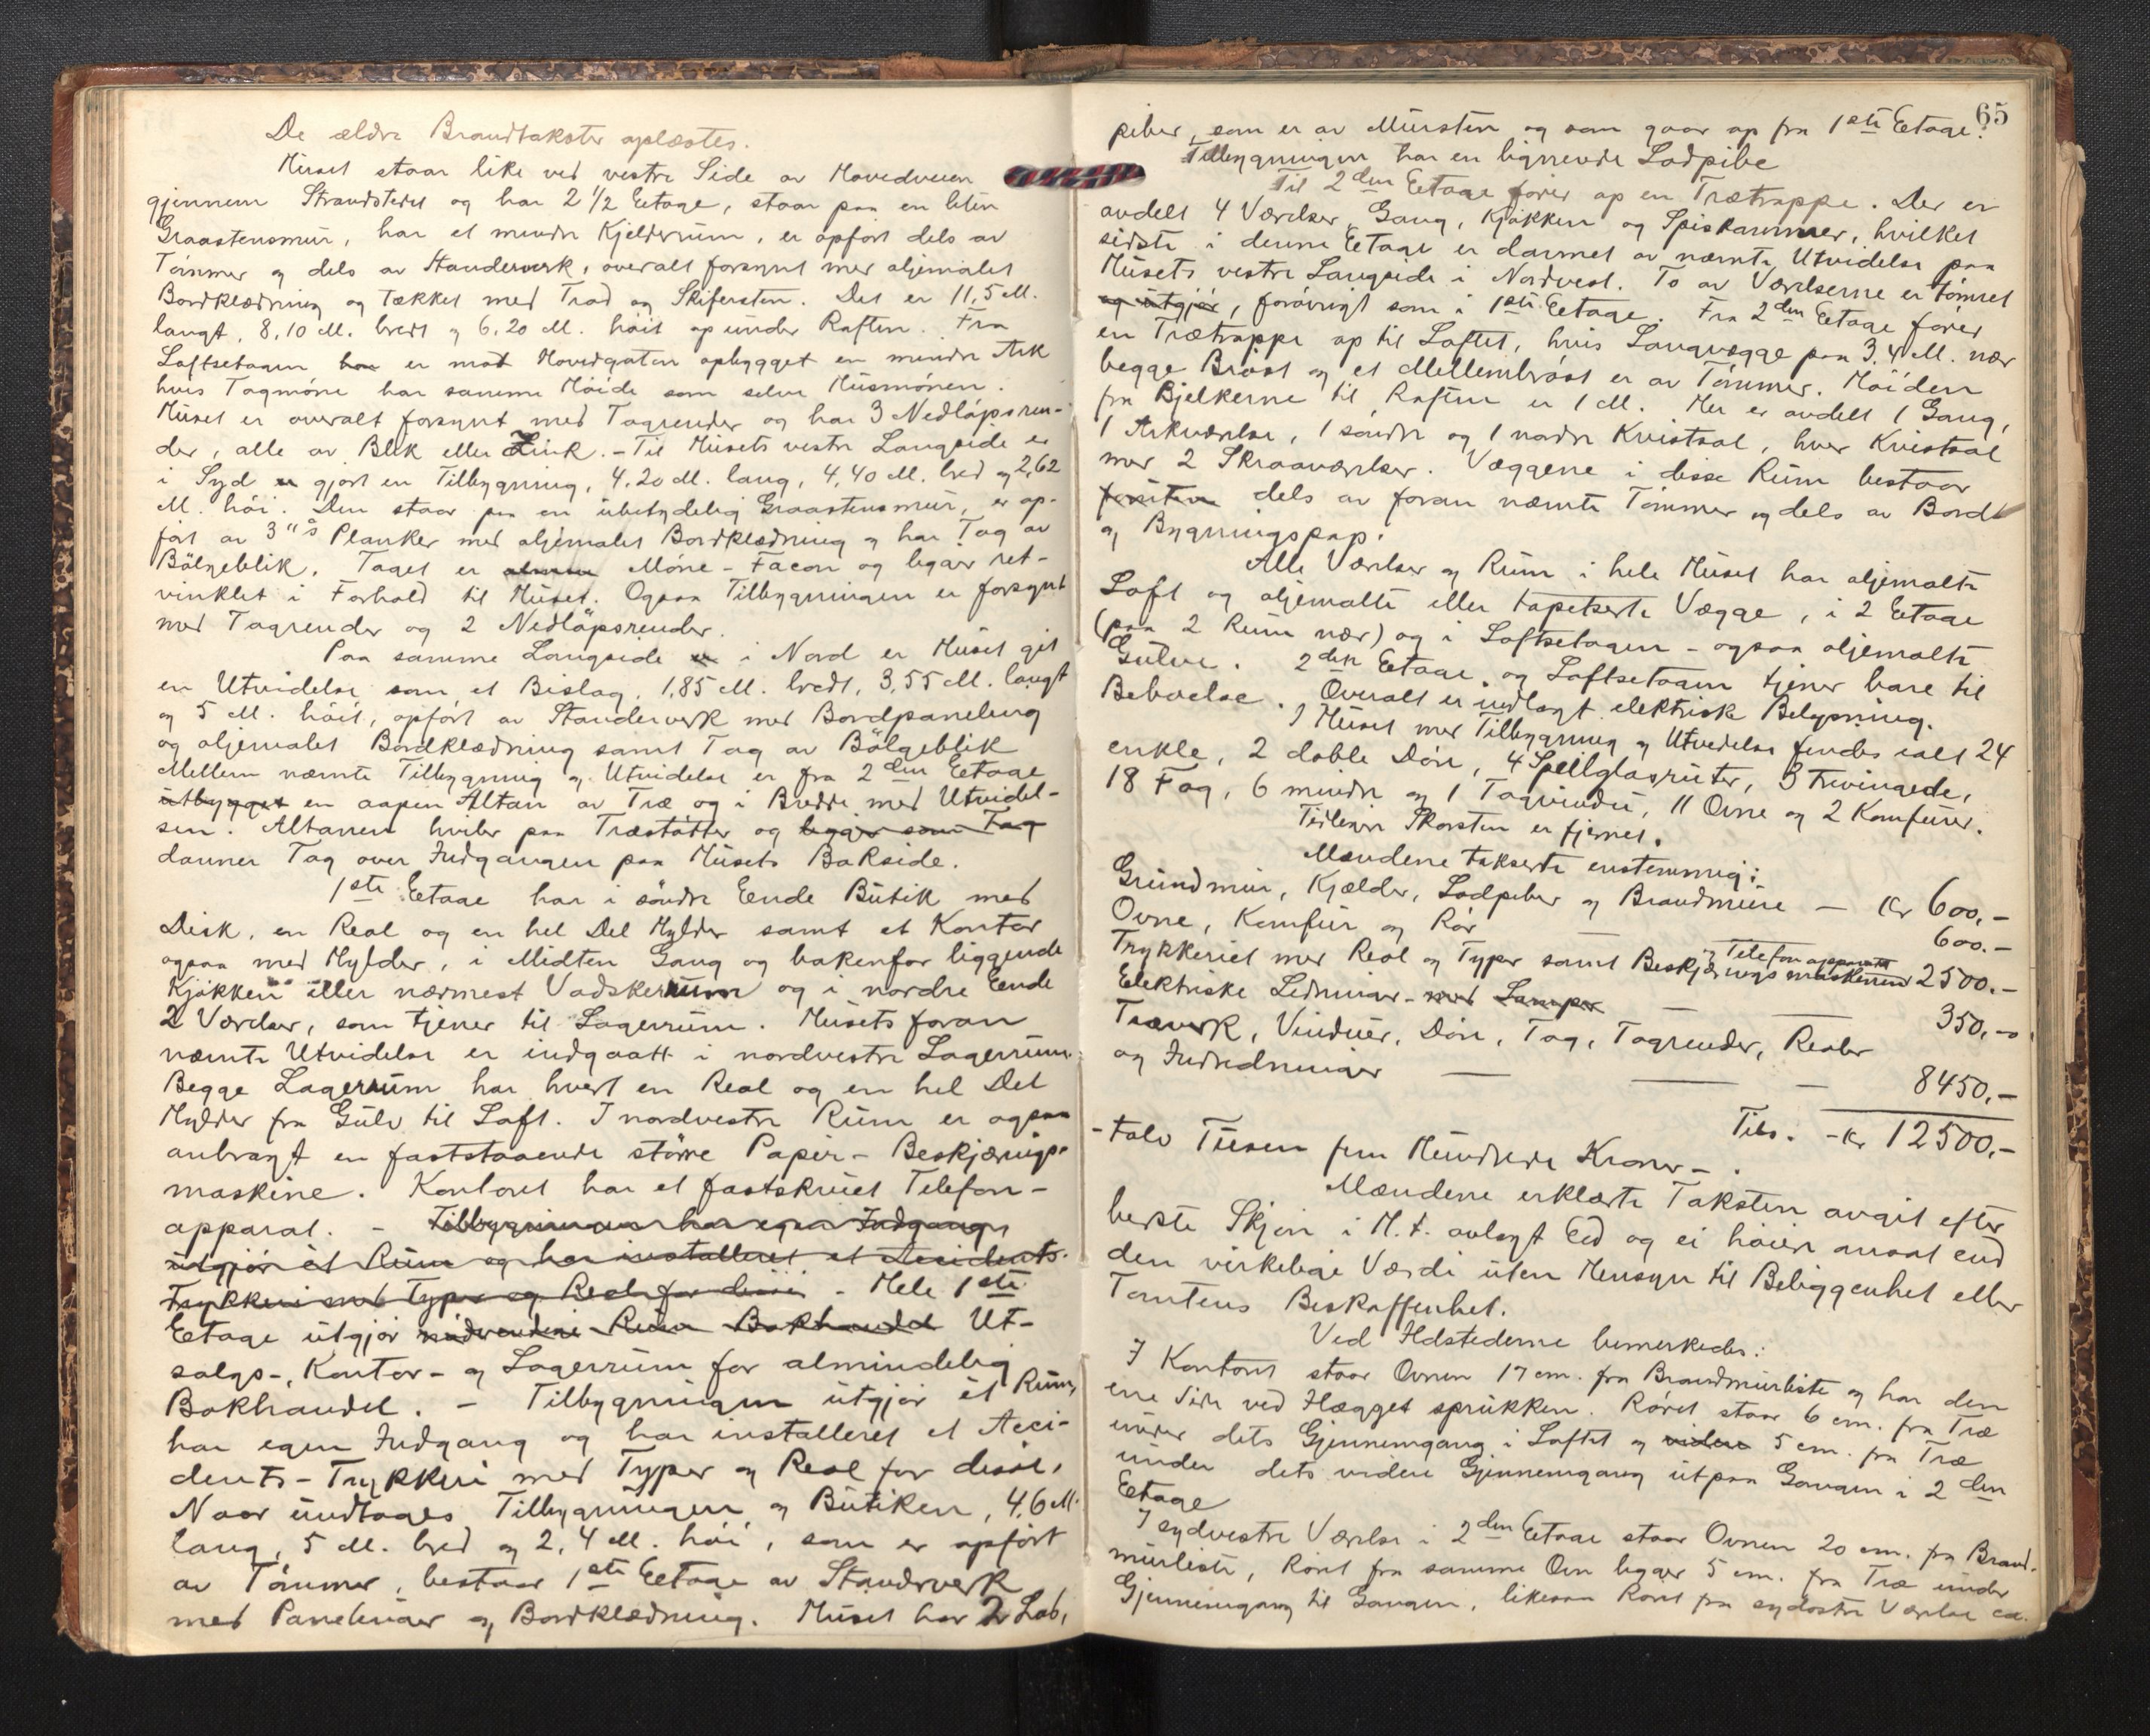 De ældre Brandtakster oplæstes.
Huset staar like ved vestre Side av Hovedveien
gjennem Strandstedet og har 2 1/2 Eetage, staar paa en liten
Graastensmur, har et mindre Kjelderrum, er opført dels av
Tømmer og dels av Standerverk, overalt forsynt mer oljemalet
Bordklædning og tækket med Trod og Skifersten. Det er 11,5 M.
langt, 8,10 M. bredt og 6,20 M. høit op under Raften. Fra
Loftsetagen har er mot Hovedgaten opbygget en mindre Ark
hvis Tagmøne har samme Høide som selve Husmønen.
Huset er overalt forsynt med Tagrender og har 3 Nedløpsren-
der, alle av Blik eller Zink. - Til Husets vestre Langside er
i Syd er gjort en Tilbygning, 4,20 M. lang, 4,40 M. bred og 2,62
M. høi. Den staar paa en ubetydelig Graastensmur, er op-
ført av 3"s Planker med oljemalet Bordklædning og har Tag av
Bølgeblik. Taget er Møne-Facon og ligger ret-
vinklet i Forhold til Huset. Ogsaa Tilbygningen er forsynt
med Tagrender og 2 Nedløpsrender.
Paa samme Langside er i Nord er Huset git
en Utvidelse som et Bislag, 1,85 M. bredt, 3,55 M. langt
og 5 M. høit, opført av Standerverk med Bordpaneling
og oljemalet Bordklædning samt Tag av Bølgeblik
Mellem nævnte Tilbygning og Utvidelse er fra 2den Eetage
utbygget en aapen Altan av Træ og i Bredde med Utvidel-
sen. Altanen hviler paa Træstøtter og ligger som Tag
danner Tag over Indgangen paa Husets Bakside.
1ste Eetage har i søndre Ende Butik med
Disk, en Reol og en hel Del Hylder samt et Kontor
ogsaa med Hylder, i Midten Gang og bakenfor liggende
Kjøkken eller nærmest Vadskerum og i nordre Ende
2 Værelser, som tjener til Lagerrum. Husets foran
nævnte Utvidelse er indgaatt i nordvestre Lagerrum.
Begge Lagerrum har hvert en Reol og en hel Del
Hylder fra Gulv til Loft. I nordvestre Rum er ogsaa
anbragt en faststaaende større Papir-Beskjærings-
maskine. Kontoret har et fastskruet Telefon-
apparat. - Tilbygningen har egen Indgang,
utgjør et Rum og har installeret et Accidents-
Trykkeri med Typer og Reol for disse. - Hele 1ste
Eetage utgjør nødvendige Rum Bokhandel Ut-
salgs-, Kontor- og Lagerrum for almindelig
Bokhandel. - Tilbygningen utgjør et Rum,
har egen Indgang og har installeret et Acci-
dents-Trykkeri med Typer og Reol for disse.
Naar undtages Tilbygningen og Butiken, 4,6 M.
lang, 5 M. bred og 2,4 M. høi, som er opført
av Tømmer, bestaar 1ste Eetage av Standerverk
med Panelinger og Bordklædning. Huset har 2 Lod,
65
piber, som er av Mursten og som gaar op fra 1ste Eetage.
Tilbygningen har en lignende Lodpibe
Til 2den Eetage fører op en Trætrappe. Der er
avdelt 4 Værelser, Gang, Kjøkken og Spiskammer, hvilket
sidste i denne Eetage er dannet av nævnte Utvidelse paa
Husets vestre Langside i Nordvest. To av Værelserne er tømret
og utgjør, forøvrigt som i 1ste Eetage. Fra 2den Eetage fører
en Trætrappe op til Loftet, hvis Langvægge paa 3,4 M. nær
begge Brøst og et Mellembrøst er av Tømmer. Høiden
fra Bjelkerne til Raften er 1 M. Her er avdelt 1 Gang,
1 Arkværelse, 1 søndre og 1 nordre Kvistsal, hver Kvistsal
mer 2 Skraaværelser. Væggene i disse Rum bestaar
foruten dels av foran nævnte Tømmer og dels av Bord
og Bygningspap.
Alle Værelser og Rum i hele Huset har oljemalte
Loft og oljemalte eller tapetserte Vægge, i 2 Eetage
(paa 2 Rum nær) og i Loftsetagen - ogsaa oljemalte
Gulve. 2den Eetage og Loftsetagen tjener bare til
Beboelse. Overalt er indlagt elektriske Belysning.
I Huset mer Tilbygning og Utvidelse findes ialt 24
enkle, 2 doble Døre, 4 Speilglasruter, 3 Trevingede,
18 Fag, 6 mindre og 1 Tagvindu, 11 Ovne og 2 Komfurer.
Tidligere Skorsten er fjernet.
Mændene takserte enstemmig:
Grundmur, Kjælder, Lodpiber og Brandmure - Kr 600,-
Ovne, Komfur og Rør 600.-
og Telefonapparat
Trykkeriet mer Reol og Typer samt Beskjæringsmaskinen 2500.-
Elektriske Ledninger - med Lamper - 350,-
Træverk, Vinduer, Døre, Tag, Tagrender, Reoler
og Indredninger - 8450,-
Tils. - Kr 12500,-
- tolv Tusen fem Hundrede Kroner - .
Mændene erklærte Taksten avgit efter
berste Skjøn i H.t. avlagt Ed og ei høiere ansat end
den virkelige Værdi uten Hensyn til Beliggenhet eller
Tomtens Beskaffenhet.
Ved Ildstederne bemerkedes:
I Kontoret staar Ovnen 17 cm. fra Brandmurliste og har den
ene Side ved Ilægget sprukken. Røret staar 6 cm. fra Træ
under dets Gjennemgang i Loftet og videre 5 cm. fra Træ
under dets videre Gjennemgang utpaa Gangen i 2den
Eetage
I sydvestre Værelse i 2den Eetage staar Ovnen 20 cm. fra Brand-
murliste, Røret fra samme Ovn ligger 5 cm. fra Træ under
Gjennemgang til Gangen, likesaa Røret fra sydøstre Værelse ca.